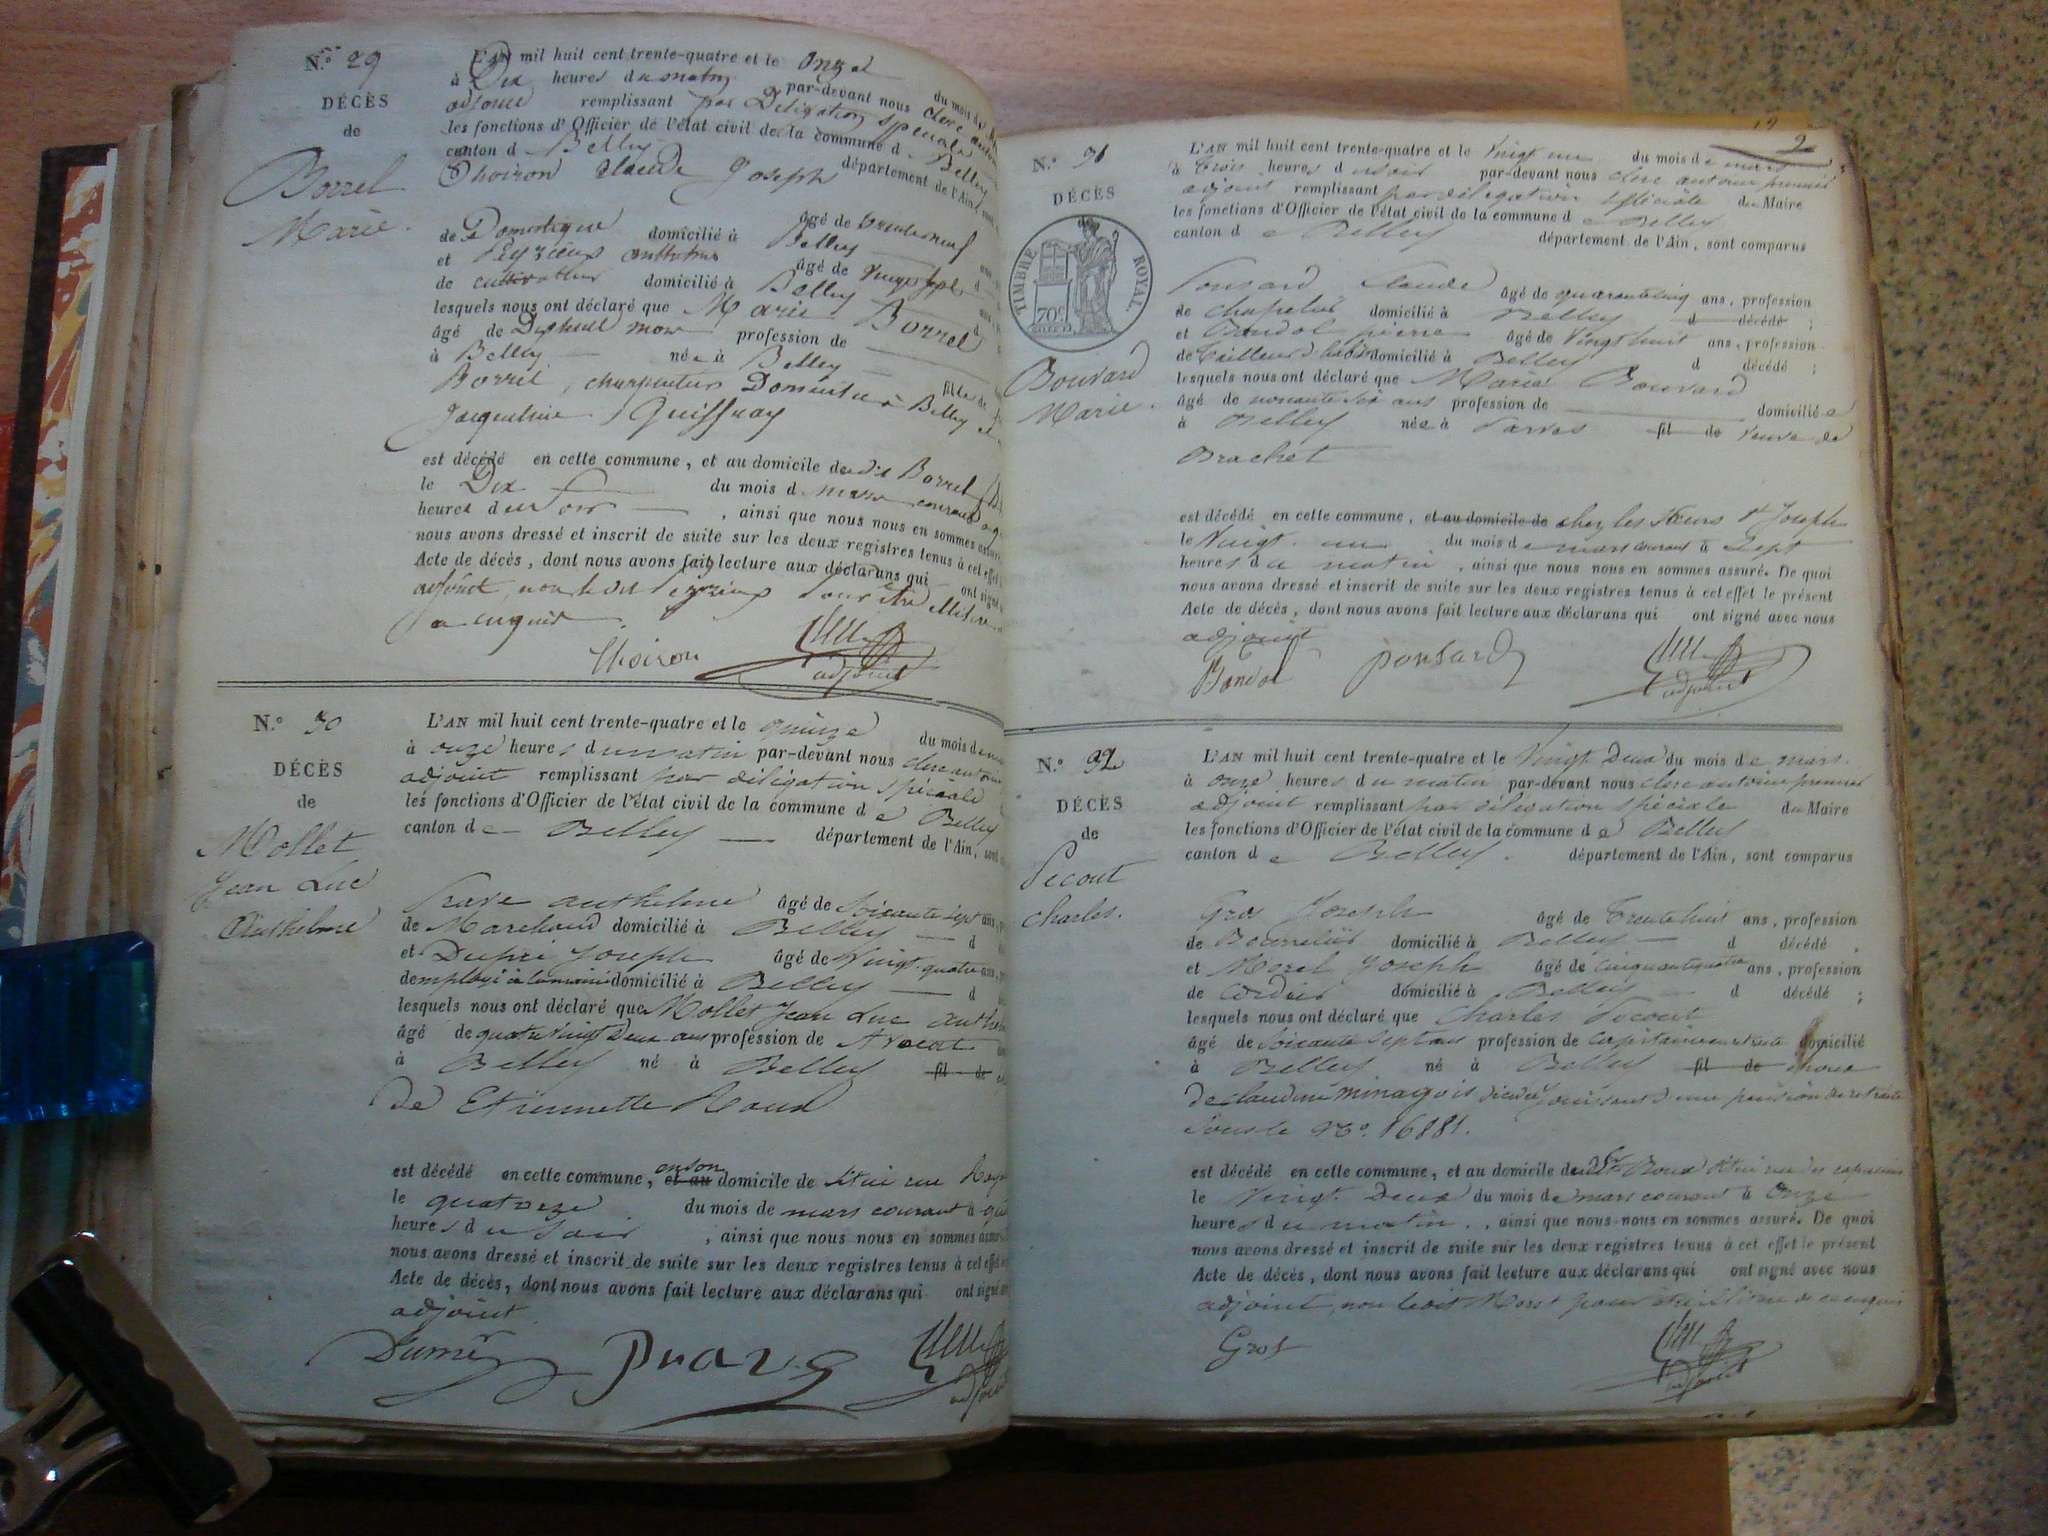 N.º 29
DÉCÈS
de
Borrel
Marie.
L'AN mil huit cent trente-quatre et le onze du mois de
à Dix heures du matin par-devant nous clerc
adjoint remplissant par Délégation spéciale
les fonctions d'Officier de l'état civil de la commune d Belley
canton d Belley département de l'Ain,
Thoiron Claude Joseph
âgé de trente neuf
de Domestique domicilié à Belley
et Peyzieux anthelme âgé de vingt sept
de cultivateur domicilié à Belley
lesquels nous ont déclaré que Marie Borrel
âgé de Dix huit mois profession de
à Belley née à Belley fille de
Borrel, charpentier Domicilié à Belley et
Jacqueline Quissnay
est décédé en cette commune, et au domicile du dit Borrel
le Dix du mois d mars courant à
heures du soir, ainsi que nous nous en sommes assuré.
nous avons dressé et inscrit de suite sur les deux registres tenus à cet effet
Acte de décès, dont nous avons fait lecture aux déclarans qui ont signé
adjoint, non le dit Peyzieux pour être illitéré
ce enquis.
Thoiron
adjoint
N.º 30
DÉCÈS
de
Mollet
Jean Luc
Anthelme
L'AN mil huit cent trente-quatre et le quinze du mois de
à onze heures du matin par-devant nous clerc antoine
adjoint remplissant par délégation spéciale
les fonctions d'Officier de l'état civil de la commune de Belley
canton de Belley département de l'Ain,
anthelme âgé de soixante sept ans,
de Marchand domicilié à Belley d
et Dupré Joseph âgé de vingt quatre ans,
de employé à la mairie domicilié à Belley d
lesquels nous ont déclaré que Mollet Jean Luc
âgé de quatre vingt deux ans profession de Avocat
à Belley né à Belley fil de
de Etiennette Roux
est décédé en cette commune, en son et au domicile de situé rue
le quatorze du mois de mars courant à
heures du soir, ainsi que nous nous en sommes
nous avons dressé et inscrit de suite sur les deux registres tenus à cet effet
Acte de décès, dont nous avons fait lecture aux déclarans qui ont signé
adjoint
adjoint
2
N.º 31
DÉCÈS
TIMBRE ROYAL.
70 c
Bouvard
Marie.
L'AN mil huit cent trente-quatre et le vingt un du mois de mars
à trois heures du soir par-devant nous clerc antoine premier
adjoint remplissant par délégation spéciale du Maire
les fonctions d'Officier de l'état civil de la commune de Belley
canton de Belley département de l'Ain, sont comparus
Ponsard Claude âgé de quarante cinq ans, profession
de chapelier domicilié à Belley d décédé ;
et Bandol pierre âgé de vingt huit ans, profession
de tailleur d'habits domicilié à Belley d décédé ;
lesquels nous ont déclaré que Marie Bouvard
âgé de nonante six ans profession de domiciliée
à Belley née à Parves fil de veuve de
Brachet
est décédé en cette commune, et au domicile de chez les sœurs St Joseph
le vingt un du mois de mars courant à sept
heures du matin, ainsi que nous nous en sommes assuré. De quoi
nous avons dressé et inscrit de suite sur les deux registres tenus à cet effet le présent
Acte de décès, dont nous avons fait lecture aux déclarans qui ont signé avec nous
adjoint
Bandol ponsard
adjoint
N.º 32
DÉCÈS
de
Pecout
Charles.
L'AN mil huit cent trente-quatre et le vingt Deux du mois de mars.
à onze heures du matin par-devant nous clerc antoine premier
adjoint remplissant par délégation spéciale du Maire
les fonctions d'Officier de l'état civil de la commune de Belley
canton de Belley. département de l'Ain, sont comparus
Gros Joseph âgé de trente huit ans, profession
de Bourrelier domicilié à Belley d décédé ;
et Morel Joseph âgé de cinquante quatre ans, profession
de cordier domicilié à Belley d décédé ;
lesquels nous ont déclaré que Charles Pecout
âgé de soixante sept ans profession de capitaine en retraite domicilié
à Belley né à Belley fil de époux
de claudine minagois décédée jouissant d'une pension de retraite
sous le N.º 16881.
est décédé en cette commune, et au domicile du Sr Roux situé rue des capucins
le vingt Deux du mois de mars courant à onze
heures du matin, ainsi que nous nous en sommes assuré. De quoi
nous avons dressé et inscrit de suite sur les deux registres tenus à cet effet le présent
Acte de décès, dont nous avons fait lecture aux déclarans qui ont signé avec nous
adjoint, non le dit Morel pour être illitéré de ce enquis
Gros
adjoint